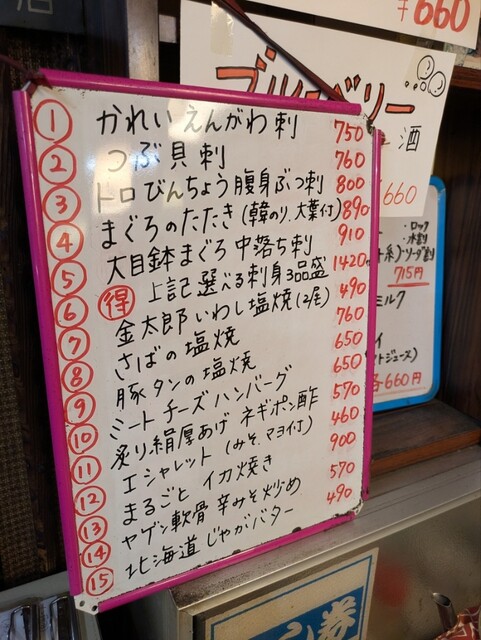 ¥660
ブルーベリー
酒
¥660
① かれいえんがわ刺 750
② つぶ貝刺 760
③ トロびんちょう腹身ぶつ刺 800
④ まぐろのたたき(韓のり、大葉付) 890
⑤ 大目鉢まぐろ中落ち刺 910
⑥ 得 上記選べる刺身3品盛 1420
⑦ 金太郎いわし塩焼(2尾) 490
⑧ さばの塩焼 760
⑨ 豚タンの塩焼 650
⑩ ミートチーズハンバーグ 650
⑪ 炙り絹厚あげ ネギポン酢 570
⑫ エシャレット(みそ、マヨ付) 460
⑬ まるごとイカ焼き 900
⑭ ヤゲン軟骨辛みそ炒め 570
⑮ 北海道じゃがバター 490
ロック
水割
ソーダ割
715円
ミルク
ジュース)
各660円
券